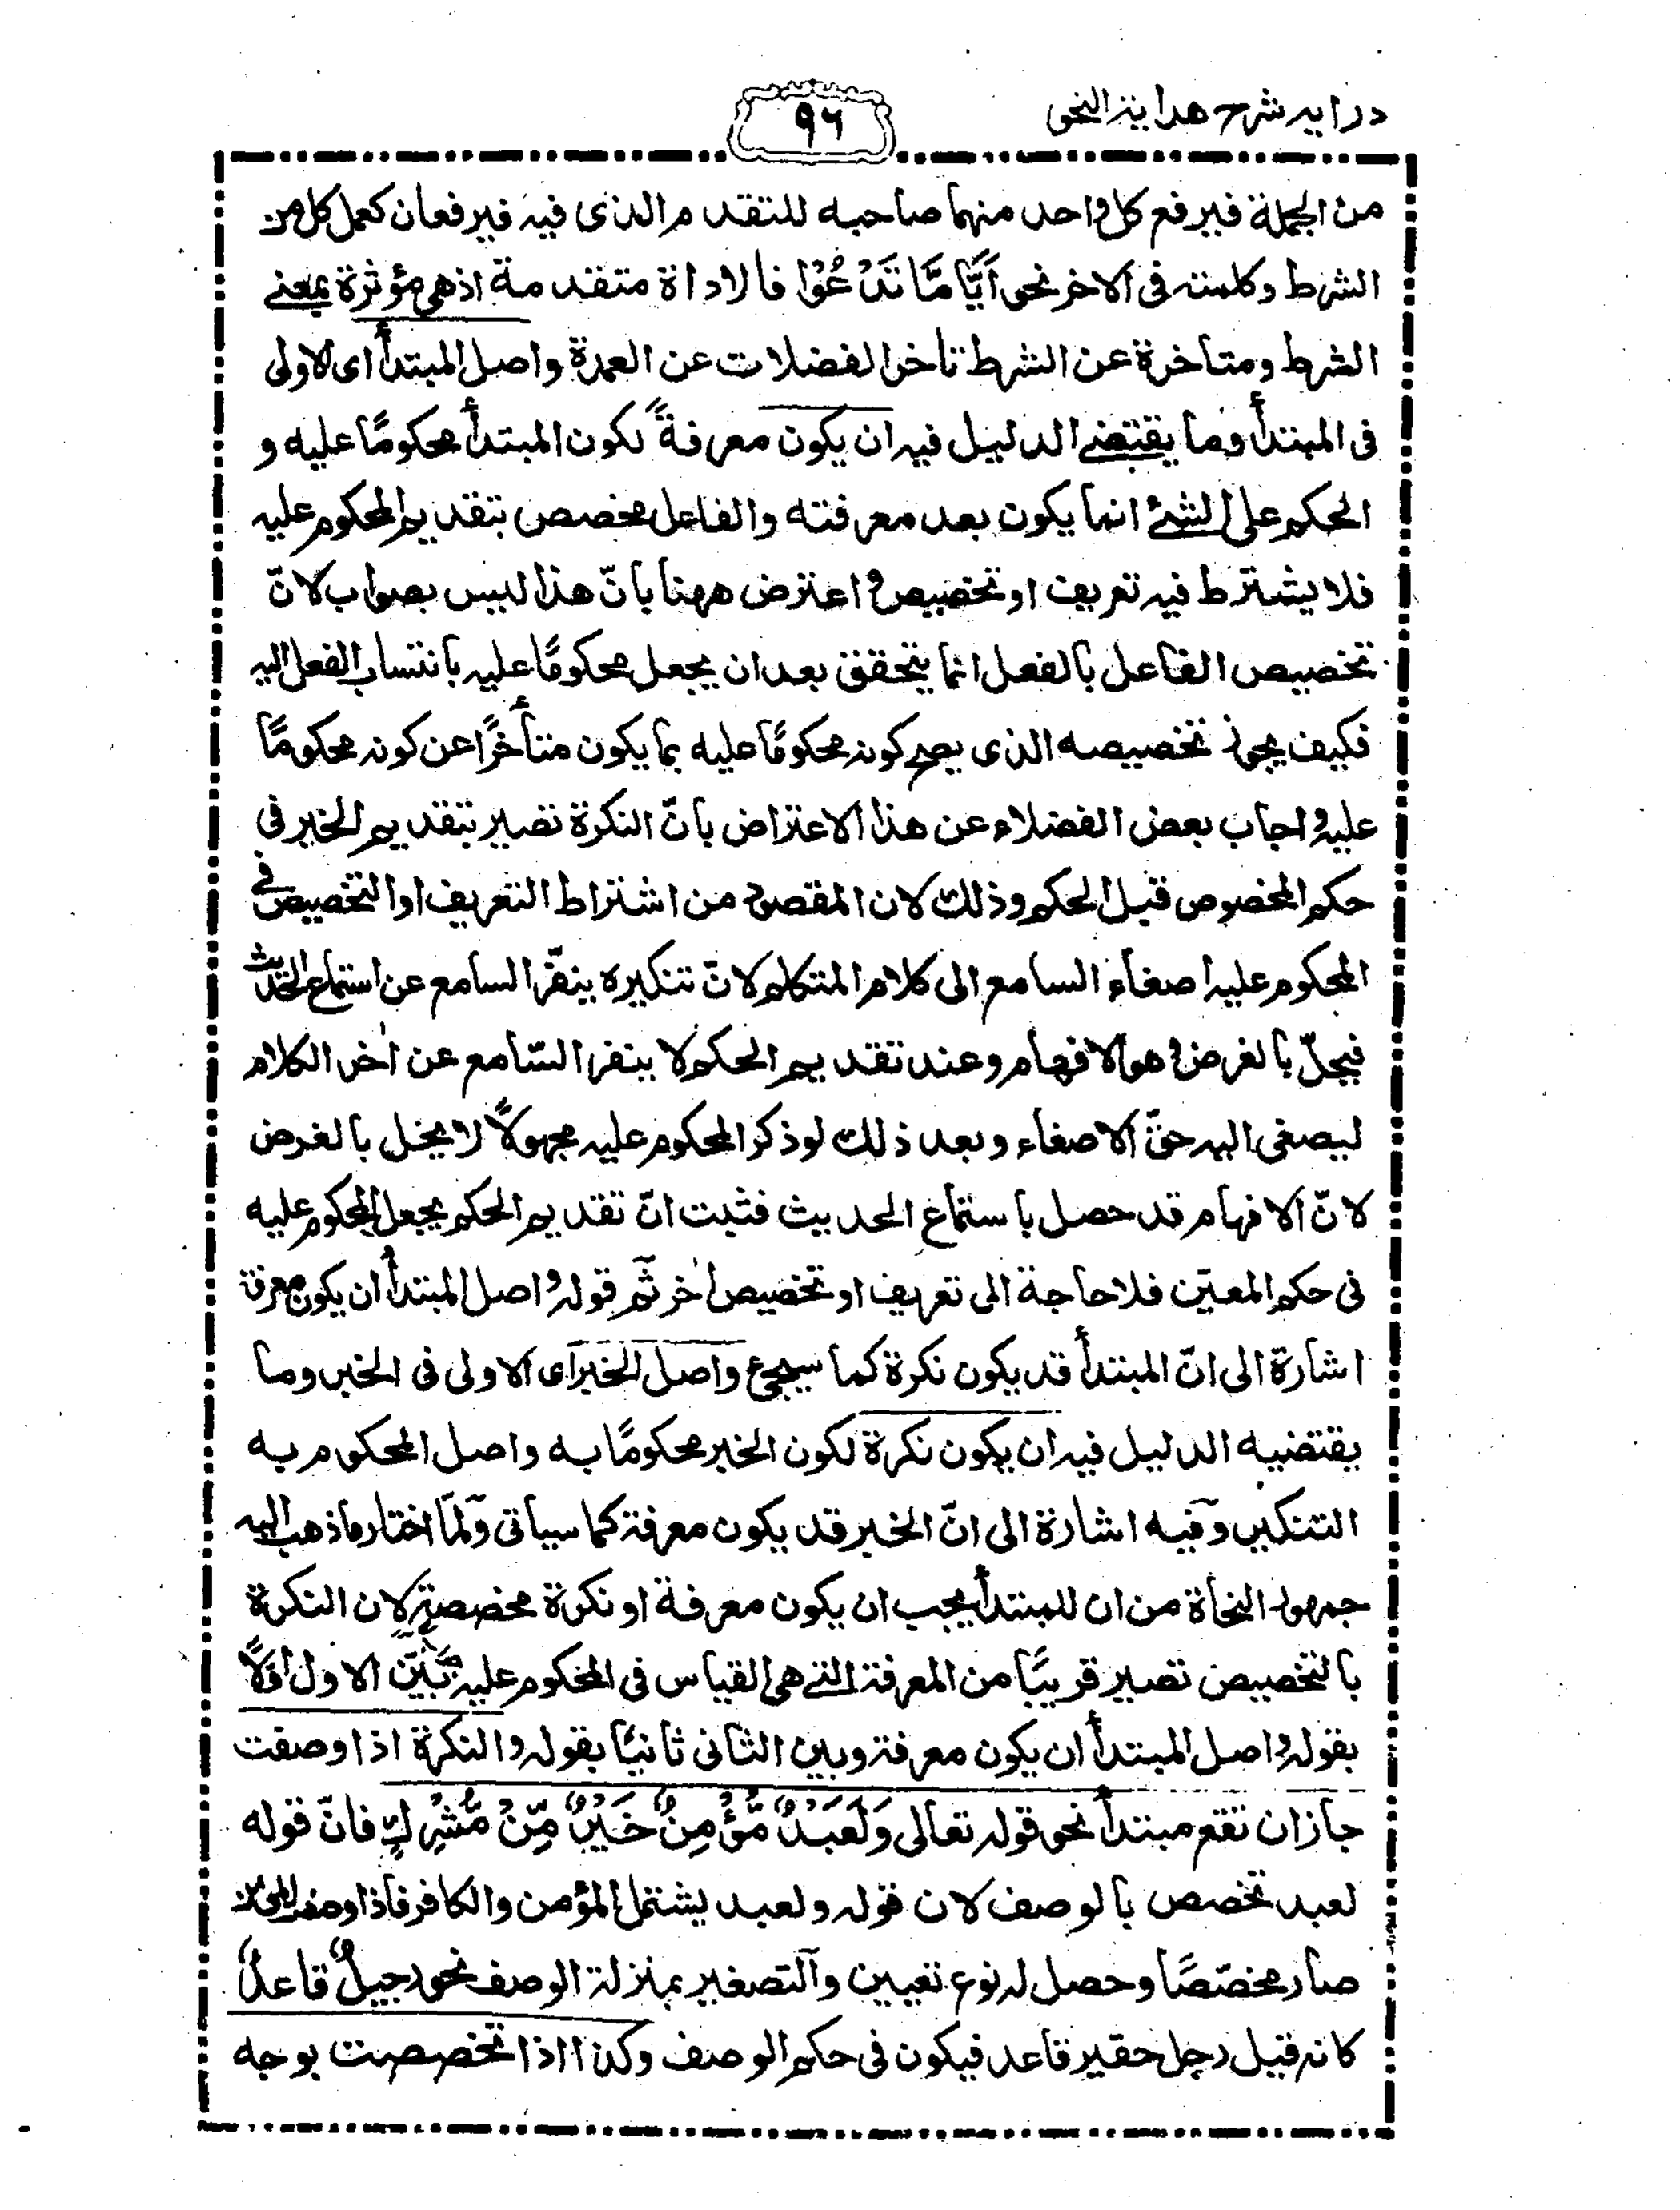 درايه شرح هداية النحو
٩٦
من الجملة فيرفع كل واحد منهما صاحبه للتقدم الذى فيه فيرفعان كعمل كل من
الشرط وكلمته فى الاخر نحو اَيًّا مَّا تَدْعُوْا فالاداة متقدمة اذ هى مؤثرة بمعنے
الشرط ومتاخرة عن الشرط تاخر الفضلات عن العمدة واصل المبتدأ اى الاولى
فى المبتدأ وما يقتضے الدليل فيه ان يكون معرفةً لكون المبتدأ محكومًا عليه و
الحكم على الشئ انما يكون بعد معرفته والفاعل مخصص بتقديم المحكوم عليه
فلا يشترط فيه تعريف او تخصيص واعترض ههنا بانّ هذا ليس بصواب لانّ
تخصيص الفاعل بالفعل انما يتحقق بعد ان يجعل محكومًا عليه بانتساب الفعل اليه
فكيف يجوز تخصيصه الذى يصح كونه محكومًا عليه بما يكون متأخرًا عن كونه محكومًا
عليه واجاب بعض الفضلاء عن هذا الاعتراض بانّ النكرة تصير بتقديم الخبر فى
حكم المخصوص قبل الحكم وذلك لان المقصود من اشتراط التعريف او التخصيص فے
المحكوم عليه اصغاء السامع الى كلام المتكلم لانّ تنكيره ينفّر السامع عن استماع الحديث
فيخلّ بالغرض وهو الافهام وعند تقديم الحكم لا ينفر السّامع عن اٰخر الكلام
ليصغى اليه حقّ الاصغاء وبعد ذلك لو ذكر المحكوم عليه مجهولاً لا يخل بالغرض
لانّ الافهام قد حصل باستماع الحديث فثبت انّ تقديم الحكم يجعل المحكوم عليه
فى حكم المعيّن فلا حاجة الى تعريف او تخصيص اٰخر ثم قوله واصل المبتدأ ان يكون معرفة
اشارة الى انّ المبتدأ قد يكون نكرة كما سيجئ واصل الخبر اى الاولى فى الخبر وما
يقتضيه الدليل فيه ان يكون نكرة لكون الخبر محكومًا به واصل المحكوم به
التنكير وفيه اشارة الى انّ الخبر قد يكون معرفة كما سياتى ولمّا اختار ما ذهب اليه
جمهور النحاة من ان للمبتدأ يجب ان يكون معرفة او نكرة مخصصة لان النكرة
بالتخصيص تصير قريبًا من المعرفة التے هى القياس فى المحكوم عليه بَيَّنَ الاول اوّلاً
بقوله واصل المبتدأ ان يكون معرفة وبين الثانى ثانيًا بقوله والنكرة اذا وصفت
جاز ان تقع مبتدأ نحو قوله تعالى وَلَعَبْدٌ مُّؤْمِنٌ خَيْرٌ مِّنْ مُّشْرِكٍ فانّ قوله
لعبد تخصص بالوصف لان قوله ولعبد يشتمل المؤمن والكافر فاذا وصف بالمؤمن
صار مخصّصًا وحصل له نوع تعيين والتصغير بمنزلة الوصف نحو رجيلٌ قاعدٌ
كانه قيل رجل حقير قاعد فيكون فى حكم الوصف وكذا اذا تخصصت بوجه